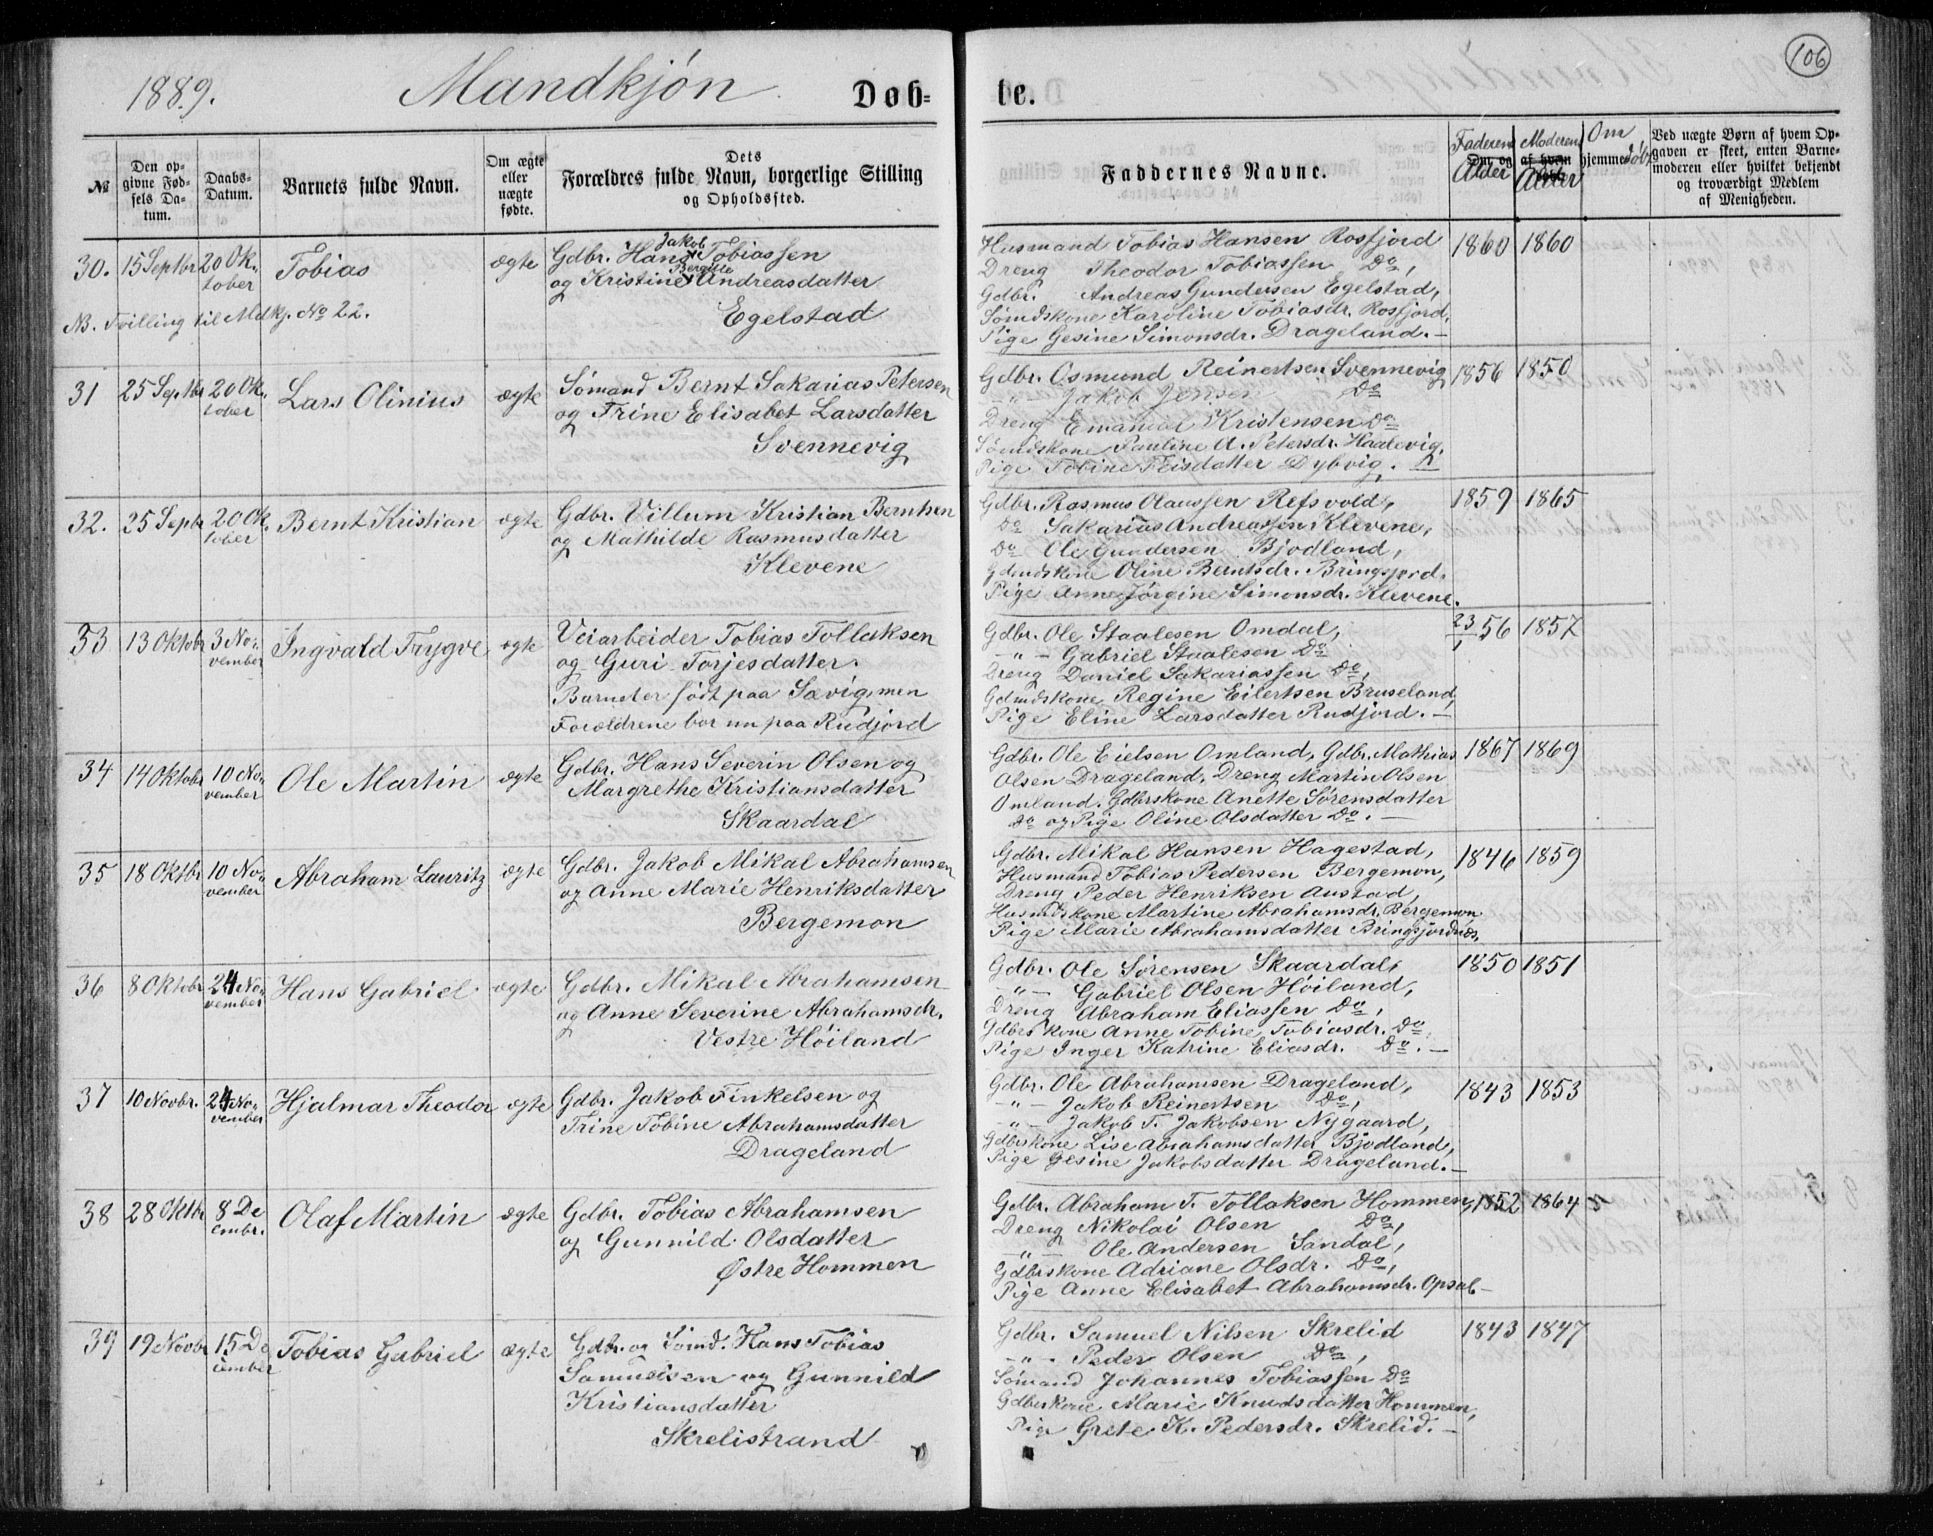 106
1889.
Mandkjön
Døb-
te.
№
Den opgivne Fødsels Datum.
Daabs-Datum.
Barnets fulde Navn.
Om ægte eller nægte fødte.
Dets Forældres fulde Navn, borgerlige Stilling og Opholdssted.
Faddernes Navne.
Faderens Alder
Moderens Alder
Om hjemmedøbt
Ved nægte Børn af hvem Opgaven er skeet, enten Barnemoderen eller hvilket bekjendt og troværdigt Medlem af Menigheden.
30.
15 Septbr
20 Oktober
Tobias
ægte
Gdbr. Hans Jakob Tobiassen
og Kristine Bergitte Andreasdatter
Egelstad
NB. Tvilling til Mdkj. No 22.
Husmand Tobias Hansen Rosfjord
Dreng Theodor Tobiassen Do,
Gdbr. Andreas Gundersen Egelstad,
Sømdskone Karoline Tobiasdr. Rosfjord,
Pige Gesine Simonsdr. Drageland. —
1860
1860
31
25 Septbr
20 Oktober
Lars Olinius
ægte
Sømand Bernt Sakarias Petersen
og Trine Elisabet Larsdatter
Svennevig
Gdbr. Osmund Reinertsen Svennevig
— " — Jakob Jensen Do
Dreng Emanuel Kristensen Do
Sømdskone Pauline A. Petersdr. Haalevig,
Pige Tobine Teisdatter Dybvig.
1856
1850
32.
25 Septbr
20 Oktober
Bernt Kristian
ægte
Gdbr. Villum Kristian Berntsen
og Mathilde Rasmusdatter
Klevene
Gdbr. Rasmus Olaussen Refsvold,
Do Sakarias Andreassen Klevene,
Do Ole Gundersen Bjodland,
Gdmdskone Oline Berntsdr. Bringsjord,
Pige Anne Jørgine Simonsdr. Klevene.
1859
1865
33
13 Oktobr
3 November
Ingvald Trygve
ægte
Veiarbeider Tobias Tollaksen
og Guri Torjesdatter.
Barnet er födt paa Sævig, men
Forældrene bor nu paa Rudjord
Gdbr. Ole Staalesen Omdal,
— " — Gabriel Staalesen Do
Dreng Daniel Sakariassen Do,
Gdmdskone Regine Eilertsen Bruseland,
Pige Eline Larsdatter Rudjord. —
23/1 56
1857
34
14 Oktobr
10 November
Ole Martin
ægte
Gdbr. Hans Severin Olsen og
Margrethe Kristiansdatter
Skaardal
Gdbr. Ole Eielsen Omland, Gdbr. Mathias
Olsen Drageland, Dreng Martin Olsen
Omland. Gdbrskone Anette Sørensdatter
Do og Pige Oline Olsdatter Do. —
1867
1869
35
18 Oktbr
10 November
Abraham Lauritz
ægte
Gdbr. Jakob Mikal Abrahamsen
og Anne Marie Henriksdatter
Bergemon
Gdbr. Mikal Hansen Hagestad,
Husmand Tobias Pedersen Bergemon,
Dreng Peder Henriksen Austad,
Husmdskone Martine Abrahamsdr. Bergemon
Pige Marie Abrahamsdatter Bringsjordnes.
1846
1859
36
8 Oktobr
24 November
Hans Gabriel
ægte
Gdbr. Mikal Abrahamsen
og Anne Severine Abrahamsdr.
Vestre Höiland
Gdbr. Ole Sörensen Skaardal,
— " — Gabriel Olsen Höiland,
Dreng Abraham Eliassen Do,
Gdbrskone Anne Tobine Tobiasdr. Do
Pige Inger Katrine Eliasdr. Do. —
1850
1851
37
10 Novbr.
24 November
Hjalmar Theodor
ægte
Gdbr. Jakob Finkelsen og
Trine Tobine Abrahamsdatter
Drageland
Gdbr. Ole Abrahamsen Drageland,
— " — Jakob Reinertsen Do,
— " — Jakob T. Jakobsen Nygaard,
Gdbrskone Lise Abrahamsdatter Bjodland,
Pige Gesine Jakobsdatter Drageland. —
1843
1853
38
28 Oktbr
8 Decembr.
Olaf Martin
ægte
Gdbr. Tobias Abrahamsen
og Gunnild Olsdatter
Østre Hommen
Gdbr. Abraham T. Tollaksen Hommen,
Dreng Nikolai Olsen Do,
— " — Ole Andersen Sandal,
Gdbrskone Adriane Olsdr. Do,
Pige Anne Elisabet Abrahamsdr. Opsal —
1852
1864
39
19 Novbr
15 December
Tobias Gabriel
ægte
Gdbr. og Sömd. Hans Tobias
Samuelsen og Gunnild
Kristiansdatter
Skrelistrand
Gdbr. Samuel Nilsen Skrelid
— " — Peder Olsen Do,
Sömand Johannes Tobiassen Do
Gdbrskone Marie Knudsdatter Hommen,
Pige Grete K. Pedersdr. Skrelid. —
1843
1847